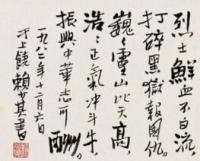 烈士鮮血不白流，
打碎黑獄報國仇。
巍〻靈山比天高，
浩〻正氣冲斗牛。
振興中華志可酬。
一九八二年十二月六日
于上饒 賴少其書